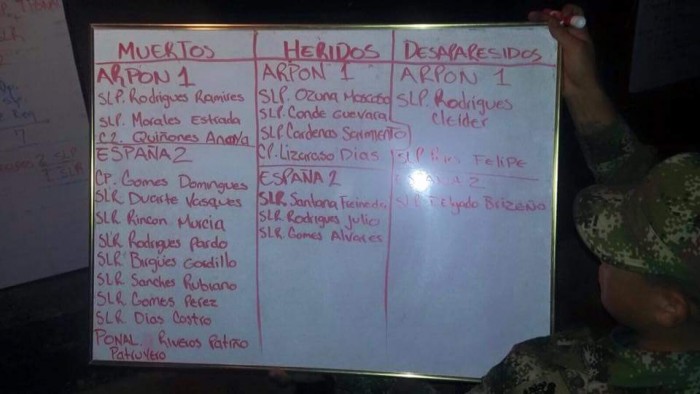 MUERTOS
ARPON 1
SLP. Rodrigues Ramires
SLP. Morales Estrada
C2. Quiñones Anaya
ESPAÑA 2
CP. Gomes Domingues
SLR Duarte Vasques
SLR Rincon Murcia
SLR Rodrigues Pardo
SLR Birgües Gordillo
SLR Sanches Rubiano
SLR Gomes Perez
SLR Dias Castro
PONAL. Riveros Patiño
Patrullero
HERIDOS
ARPON 1
SLP. Ozuna Moscoso
SLP. Conde Guevara
SLP Cardenas Sarmiento
CP. Lizaraso Dias
ESPAÑA 2
SLR. Santana
SLR Rodrigues Julio
SLR Gomes Alvares
DESAPARESIDOS
ARPON 1
SLP. Rodrigues
Cleider
SLP Felipe
2
SLR Delgado Brizeño